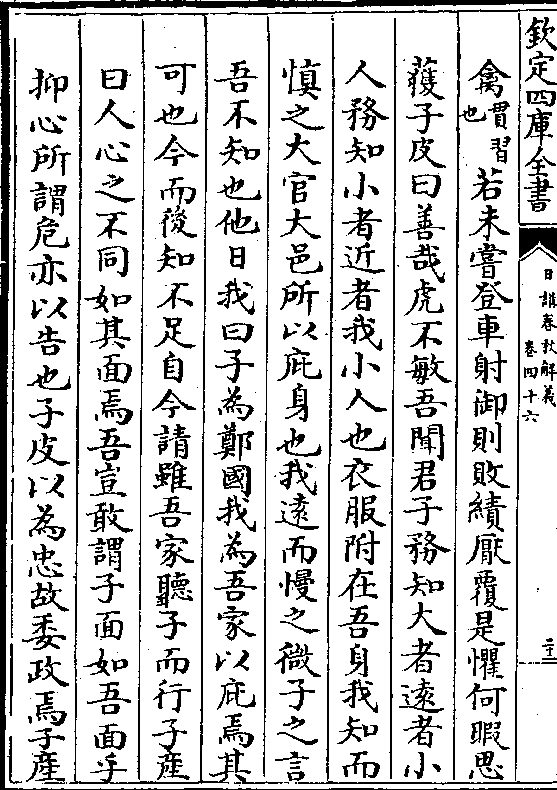 欽定四庫全書
日講春秋解義
卷四十六
禽貫習也若未嘗登車射御則敗績厭覆是懼何暇思
獲子皮曰善哉虎不敏吾聞君子務知大者遠者小
人務知小者近者我小人也衣服附在吾身我知而
慎之大官大邑所以庇身也我遠而慢之微子之言
吾不知也他日我曰子為鄭國我為吾家以庇焉其
可也今而後知不足自今請雖吾家聽子而行子產
曰人心之不同如其面焉吾豈敢謂子面如吾面乎
抑心所謂危亦以告也子皮以為忠故委政焉子產